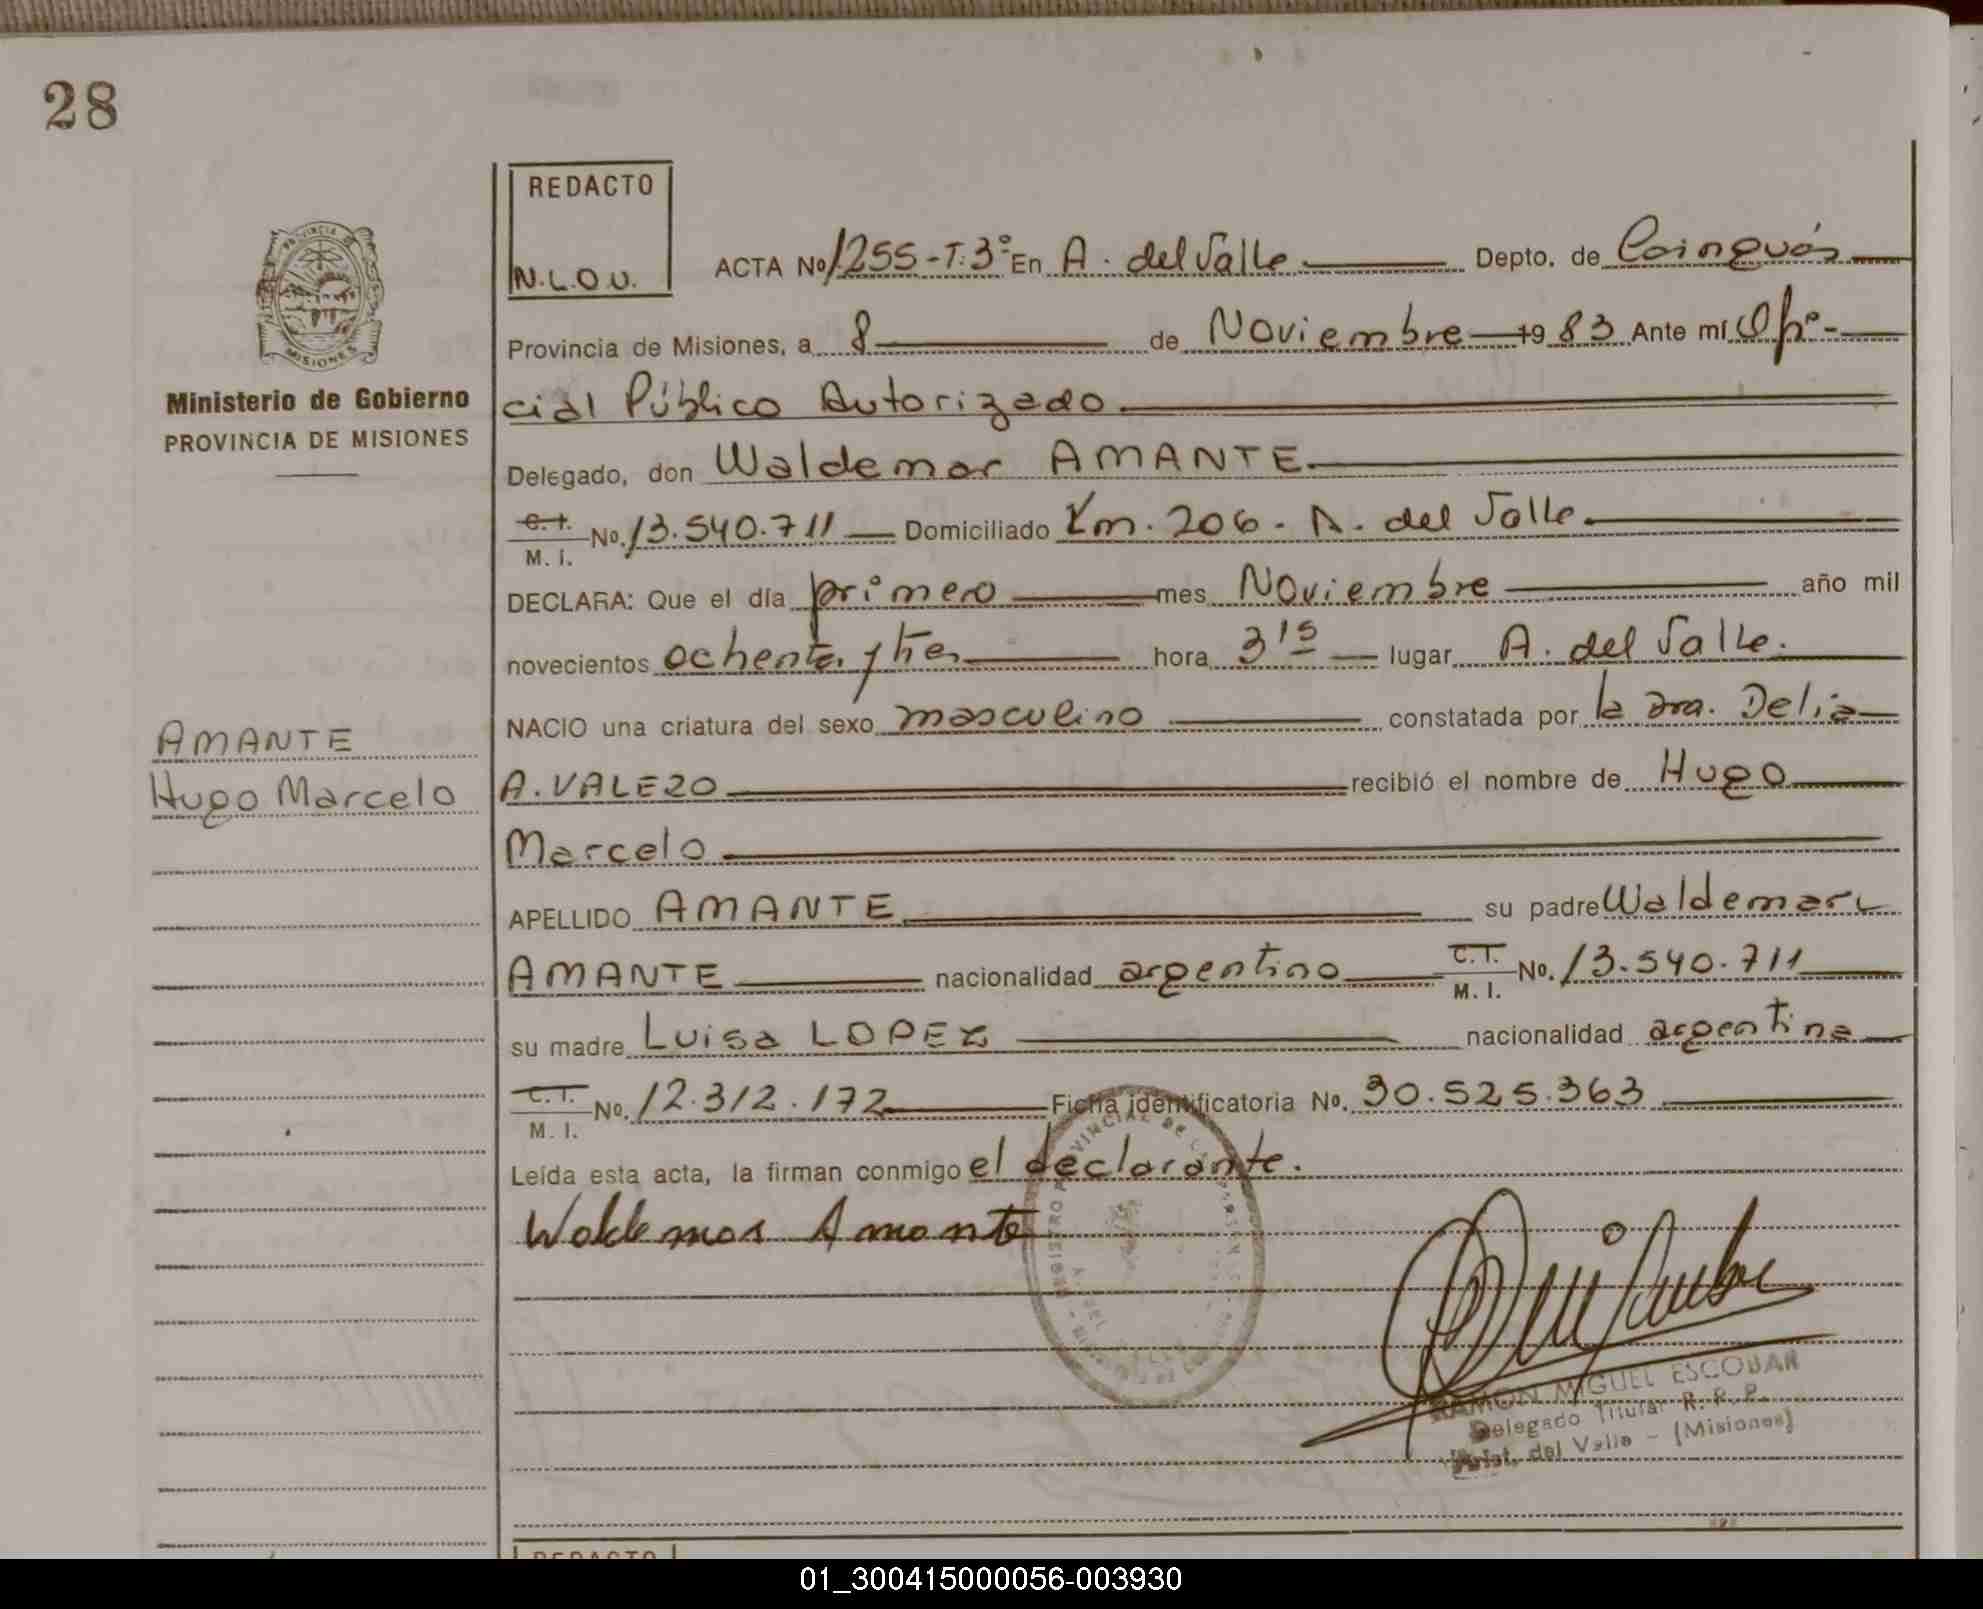 28
REDACTO
N.L.O.U.
ACTA Nº 1255-T:3º En A. del Valle Depto. de Cainguás
Provincia de Misiones, a 8 de Noviembre 1983 Ante mí Ofi-
cial Público Autorizado
Delegado, don Waldemar AMANTE
C.I. M.I. No. 13.540.711 Domiciliado Km. 206 - A. del Valle
DECLARA: Que el día primero mes Noviembre año mil
novecientos ochenta y tres hora 3 15 lugar A. del Valle.
NACIO una criatura del sexo masculino constatada por la Dra. Delia
A. VALEZO recibió el nombre de Hugo
Marcelo
APELLIDO AMANTE su padre Waldemar
AMANTE nacionalidad argentino C.I. M.I. No. 13.540.711
su madre Luisa LOPEZ nacionalidad argentina
C.I. M.I. No. 12.312.172 Ficha identificatoria No. 30.525.363
Leída esta acta, la firman conmigo el declarante.
Waldemar Amante
RAMON MIGUEL ESCOBAR
Delegado Titular R. P. P.
Arist. del Valle - (Misiones)
PROVINCIA DE
MISIONES
Ministerio de Gobierno
PROVINCIA DE MISIONES
AMANTE
Hugo Marcelo
REGISTRO PROVINCIAL DE
REDACTO
01_300415000056-003930